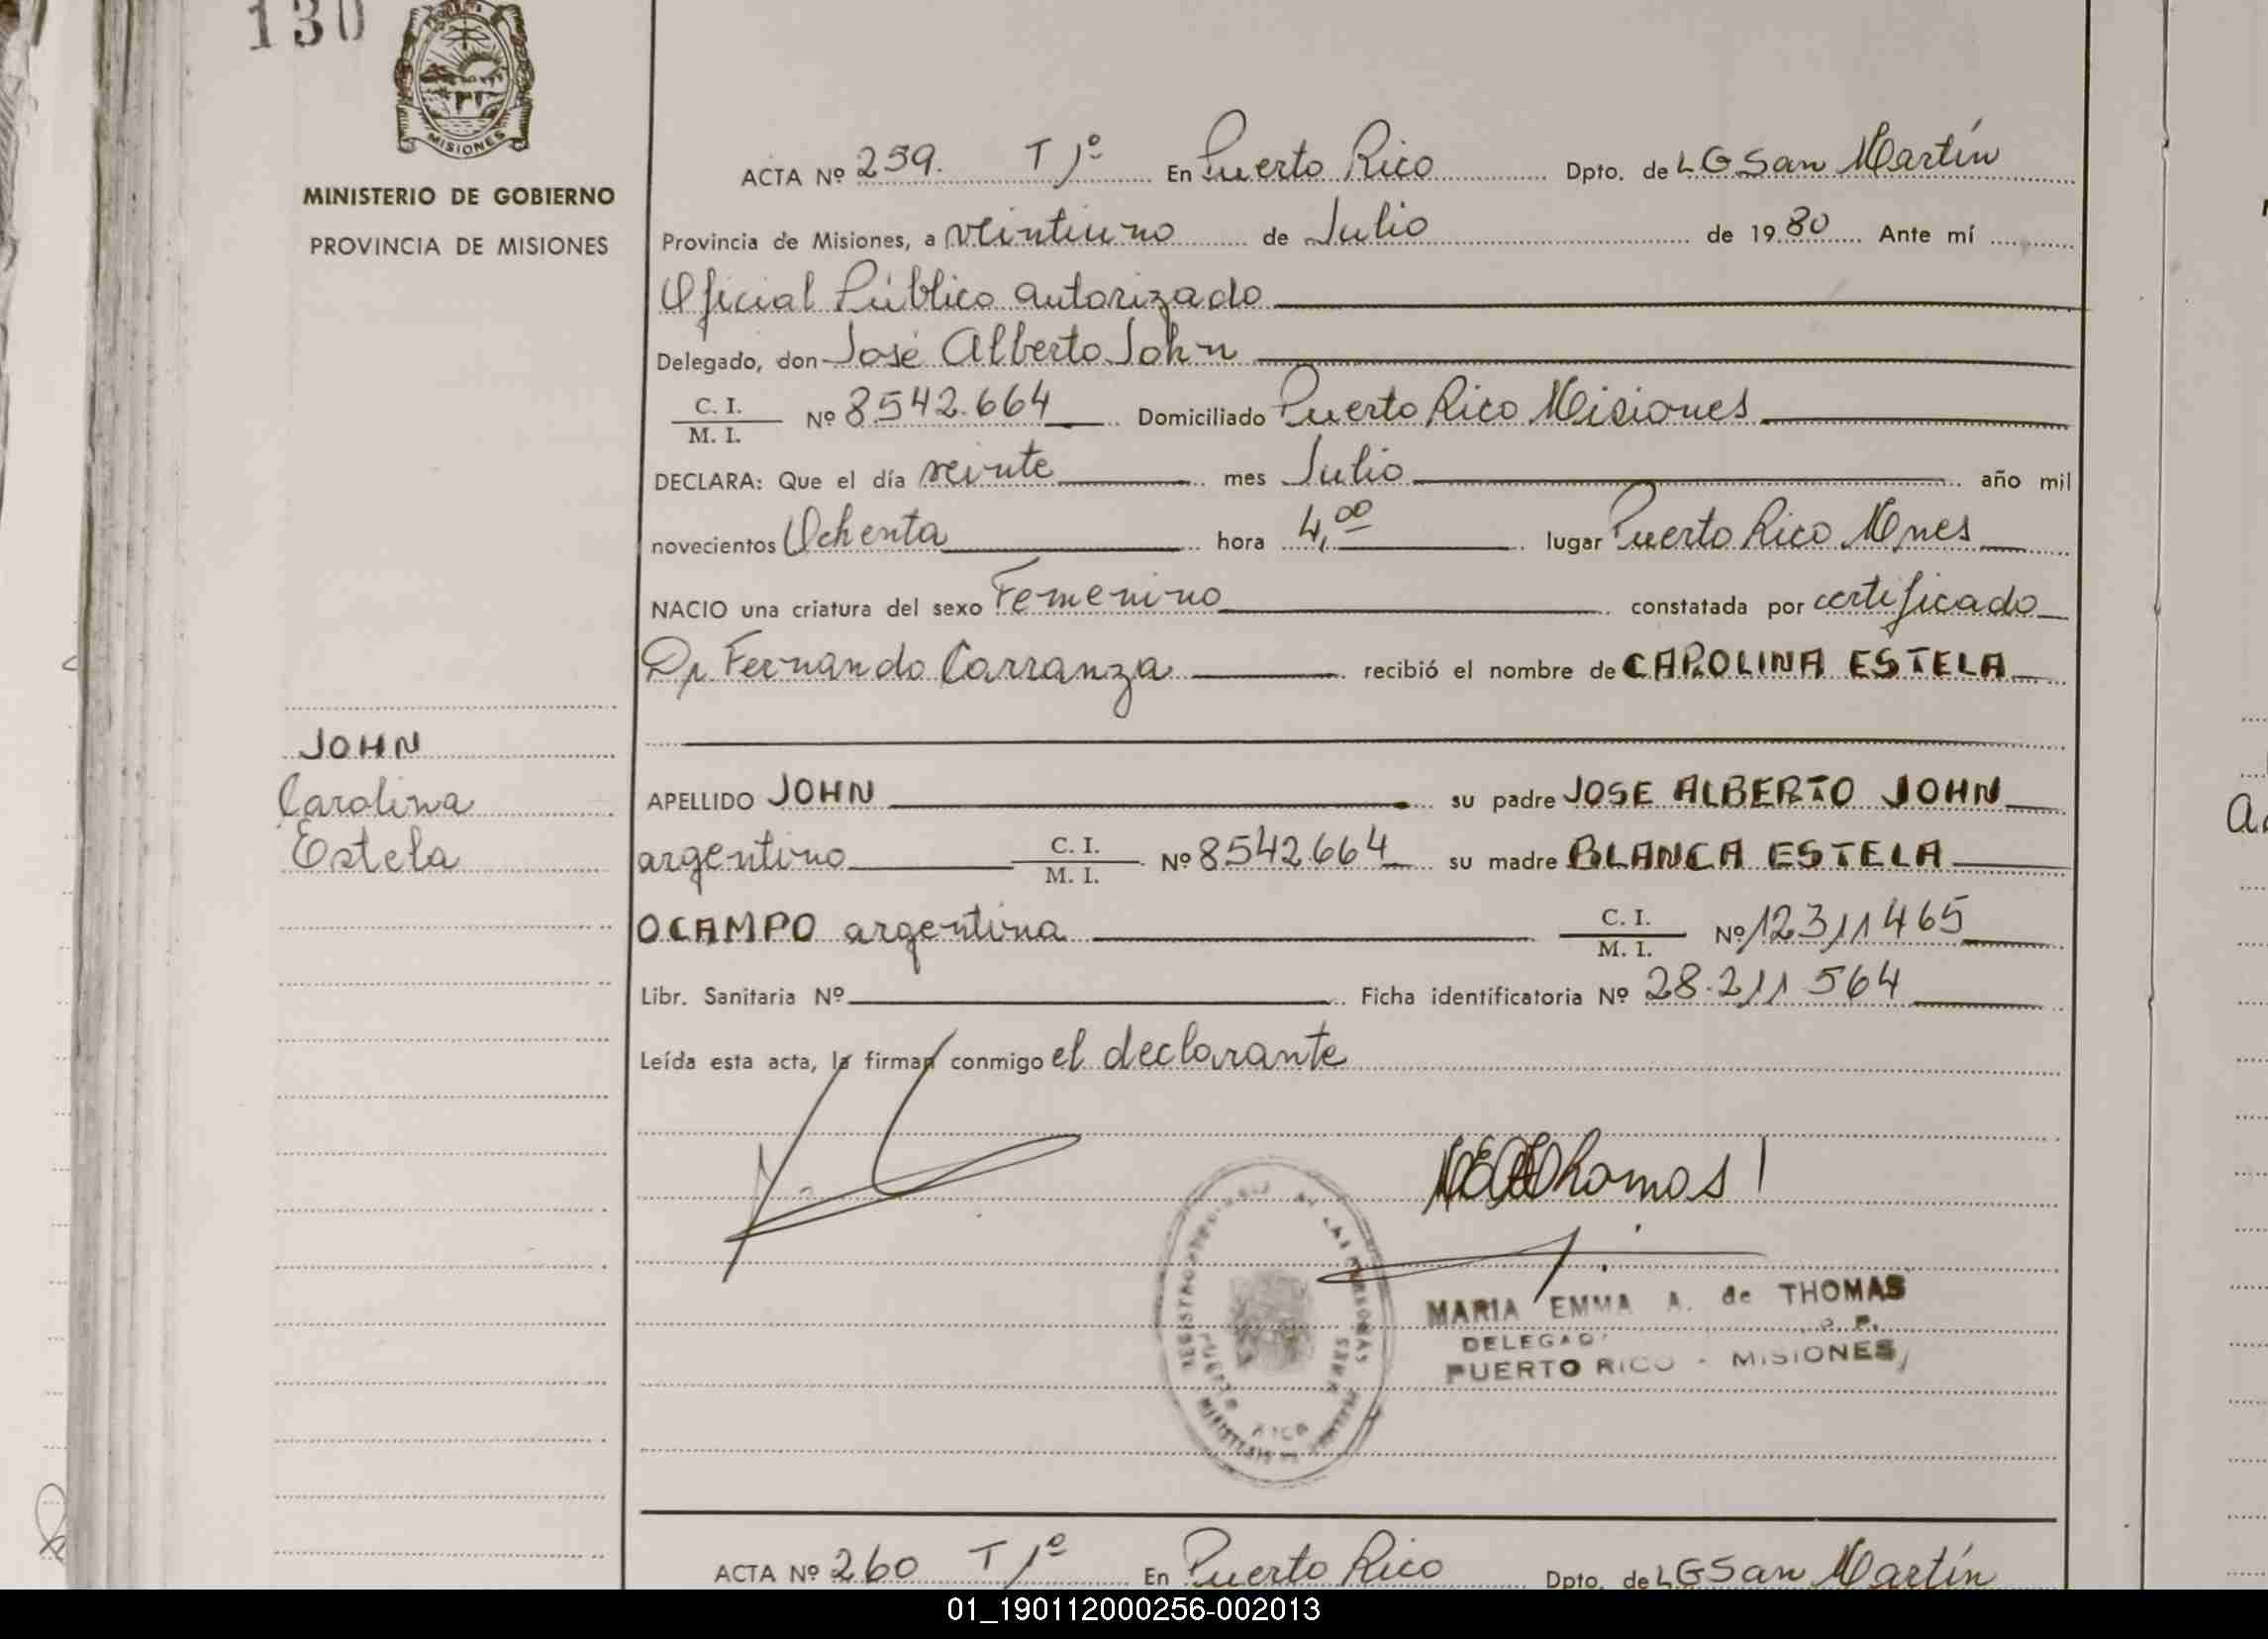 130
MISIONES
MINISTERIO DE GOBIERNO
PROVINCIA DE MISIONES
ACTA Nº 259. T 1º En Puerto Rico Dpto. de L G San Martín
Provincia de Misiones, a veintiuno de Julio de 1980 Ante mí
Oficial Público autorizado
Delegado, don José Alberto John
C. I.
M. I.
Nº 8542.664 Domiciliado Puerto Rico Misiones
DECLARA: Que el día veinte mes Julio año mil
novecientos Ochenta hora 4,00 lugar Puerto Rico Mnes
NACIO una criatura del sexo Femenino constatada por certificado
Dr. Fernando Carranza recibió el nombre de CAROLINA ESTELA
JOHN
Carolina
Estela
APELLIDO JOHN su padre JOSE ALBERTO JOHN
argentino C. I. M. I. Nº 8542664 su madre BLANCA ESTELA
OCAMPO argentina C. I. M. I. Nº 12311465
Libr. Sanitaria Nº Ficha identificatoria Nº 28.211 564
Leída esta acta, la firman conmigo el declarante
MARIA EMMA A. de THOMAS
DELEGAD
PUERTO RICO - MISIONES
PUERTO RICO
ACTA Nº 260 T 1º En Puerto Rico Dpto. de L G San Martín
01_190112000256-002013